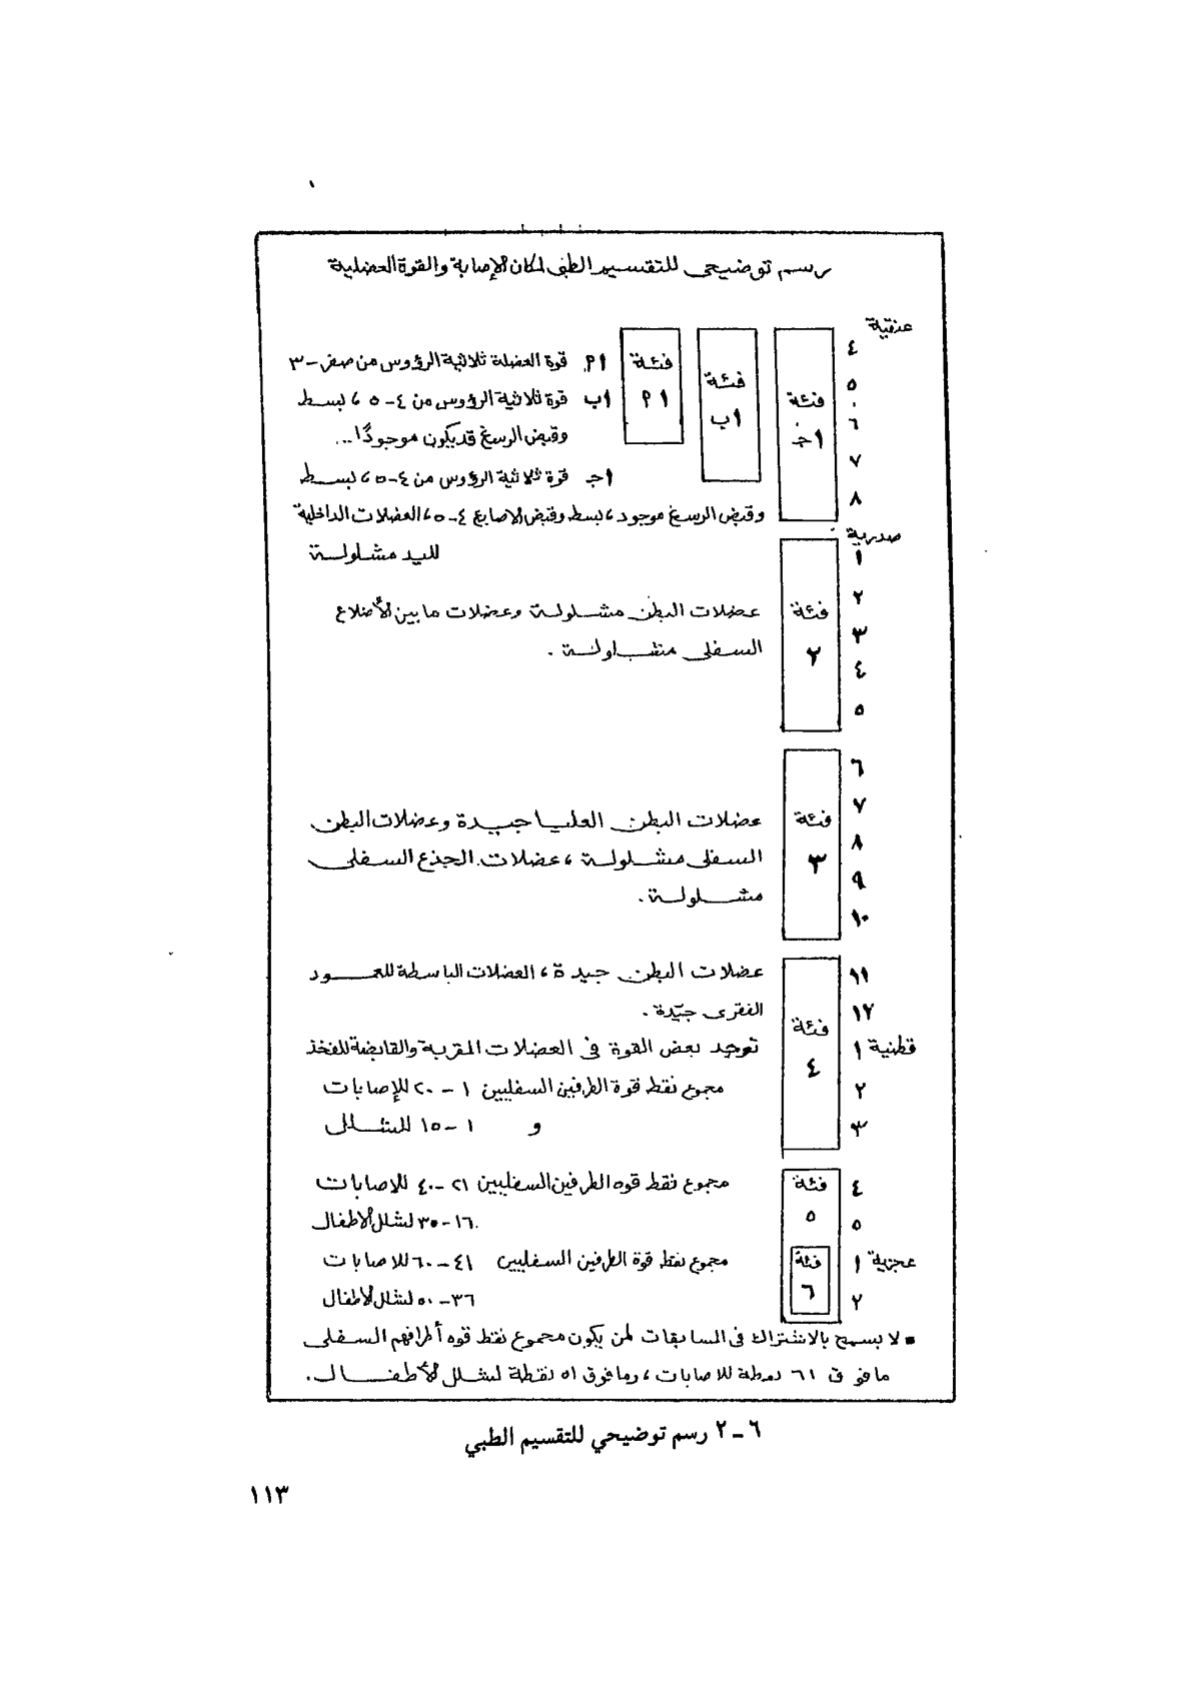 رسم توضيحى للتقسيم الطبى لمكان الإصابة والقوة العضلية
عنقية
٤
٥
٦
٧
٨
فئة
١ج
فئة
١ب
فئة
١٢
١٢ قوة العضلة ثلاثية الرؤوس من صفر - ٣
١ب قوة ثلاثية الرؤوس من ٤ - ٥ ، لبسط
وقبض الرسغ قد يكون موجودًا ...
١جـ قوة ثلاثية الرؤوس من ٤ - ٥ ، لبسط
وقبض الرسغ موجود ، لبسط وقبض الاصابع ٤ - ٥ ، العضلات الداخلية
لليد مشلولة
صدرية
١
٢
٣
٤
٥
فئة
٢
عضلات البطن مشلولة وعضلات ما بين الأضلاع
السفلى مشلولة .
٦
٧
٨
٩
١٠
فئة
٣
عضلات البطن العليا جيدة وعضلات البطن
السفلى مشلولة ، عضلات الجذع السفلى
مشلولة .
١١
١٢
قطنية ١
٢
٣
فئة
٤
عضلات البطن جيدة ، العضلات الباسطة للعمود
الفقرى جيّدة .
توجد بعض القوة فى العضلات المقربة والقابضة للفخذ
مجموع نقط قوة الطرفين السفليين ١ - ٢٠ للإصابات
و ١ - ١٥ للشلل
٤
٥
فئة
٥
مجموع نقط قوه الطرفين السفليين ٢١ - ٤٠ للاصابات
١٦ - ٣٥ لشلل الاطفال
عجزية ١
٢
فئة
٦
مجموع نقط قوة الطرفين السفليين ٤١ - ٦٠ للاصابات
٣٦ - ٥٠ لشلل الاطفال
▪ لا يسمح بالاشتراك فى المسابقات لمن يكون مجموع نقط قوه أطرافهم السفلى
ما فوق ٦١ نقطة للاصابات ، وما فوق ٥١ نقطة لشلل الأطفال .
٦ - ٢ رسم توضيحي للتقسيم الطبي
١١٣